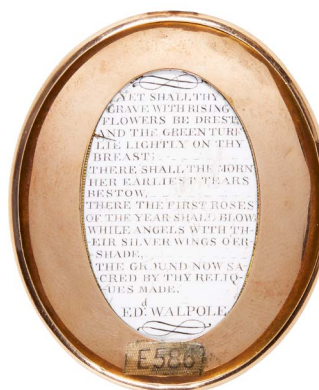 YET SHALL THY
GRAVE WITH RISING
FLOWERS BE DREST,
AND THE GREEN TURF
LIE LIGHTLY ON THY
BREAST:
THERE SHALL THE MORN
HER EARLIEST TEARS
BESTOW,
THERE THE FIRST ROSES
OF THE YEAR SHALL BLOW
WHILE ANGELS WITH TH-
EIR SILVER WINGS O'ER-
SHADE,
THE GROUND NOW SA-
CRED BY THY RELIQ-
UES MADE.
EDᵈ. WALPOLE
E586